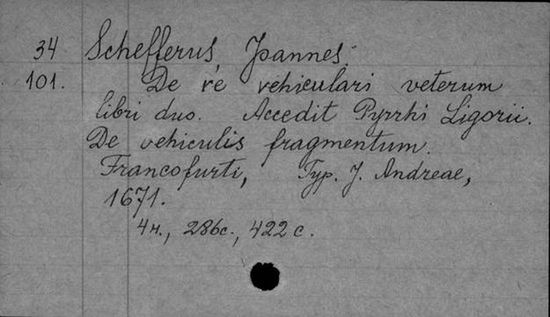 34 Schefferus, Joannes.
101. De re vehiculari veterum
libri duo. Accedit Pyrrhi Ligorii.
De vehiculis fragmentum.
Francofurti, Typ. J. Andreae,
1671.
4н., 286с., 422 с.